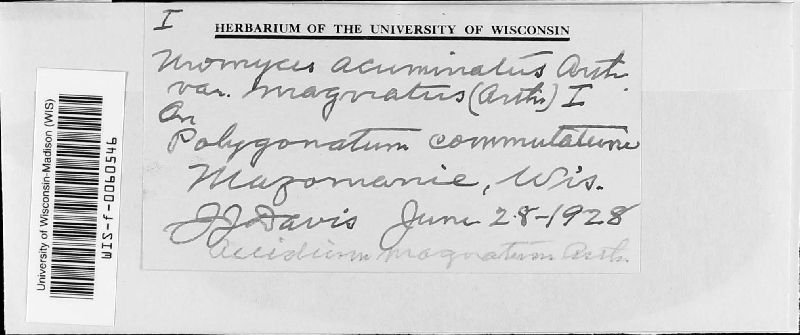 I
HERBARIUM OF THE UNIVERSITY OF WISCONSIN
Uromyces acuminatus Arth.
var. magnatus (Arth.) I
On
Polygonatum commutatum
Mazomanie, Wis.
JJ Davis June 28-1928
Aecidium magnatum Arth.
University of Wisconsin-Madison (WIS)
WIS-f-0060546